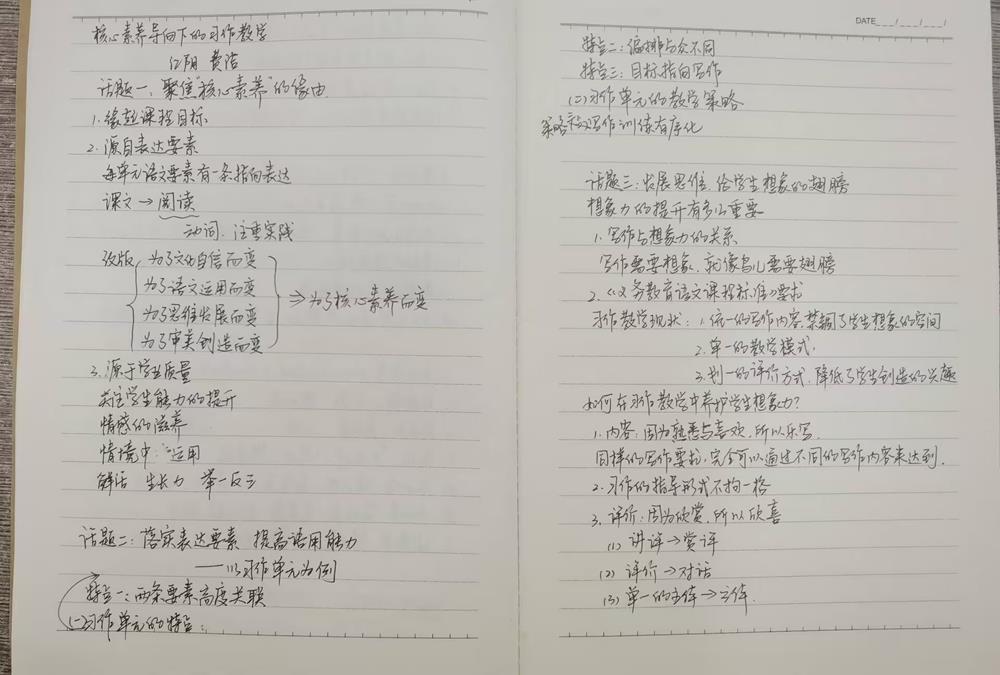 核心素养导向下的习作教学
江阴 费洁
话题一：聚焦"核心素养"的缘由
1.缘起课程目标
2.源自表达要素
每单元语文要素有一条指向表达
课文→阅读
动词 注重实践
改版 为了文化自信而变
为了语文运用而变
为了思维发展而变
为了审美创造而变
⇒为了核心素养而变
3.源于学业质量
关注学生能力的提升
情感的滋养
情境中：运用
鲜活 生长力 举一反三
话题二：落实表达要素 提高语用能力
——以习作单元为例
特点一：两条要素高度关联
(一)习作单元的特点：
DATE
特点二：编排与众不同
特点三：目标指向写作
(二)习作单元的教学策略
策略 写作训练有序化
话题三：发展思维，给学生想象的翅膀
想象力的提升有多么重要
1.写作与想象力的关系
写作需要想象，就像鸟儿需要翅膀
2.《义务教育语文课程标准》要求
习作教学现状：1.统一的写作内容，禁锢了学生想象的空间
2.单一的教学模式.
3.划一的评价方式，降低了学生创造的兴趣
如何在习作教学中养护学生想象力？
1.内容：因为熟悉与喜欢，所以乐写.
同样的写作要求，完全可以通过不同的写作内容来达到.
2.习作的指导形式不拘一格
3.评价：因为欣赏，所以欣喜
(1) 讲评→赏评
(2) 评价→对话
(3) 单一的主体→立体.